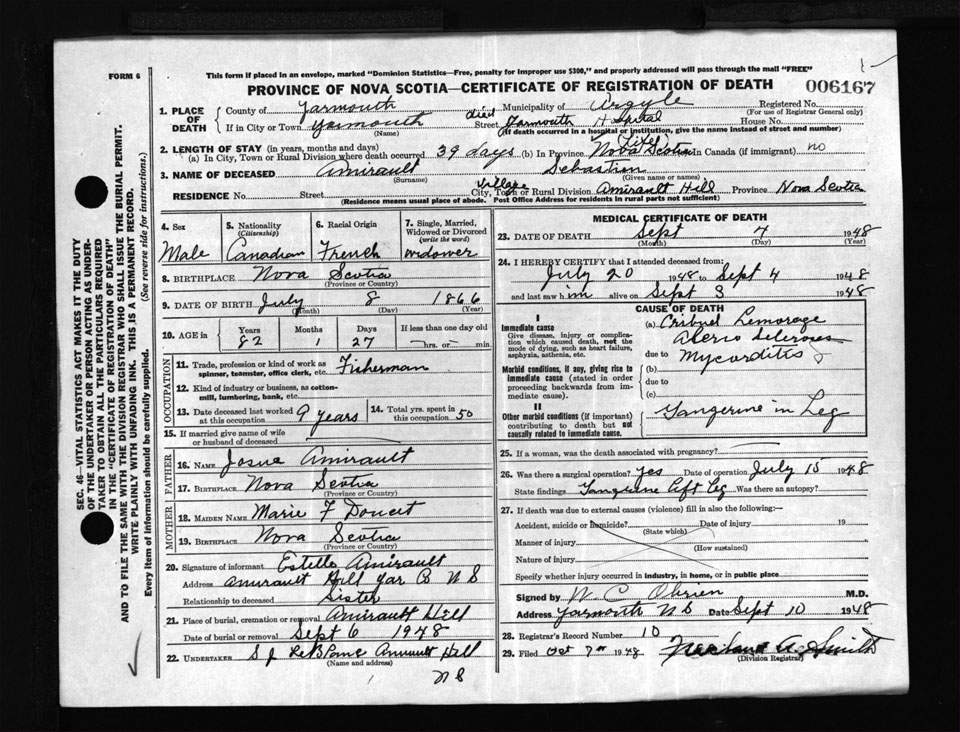 FORM 6
This form if placed in an envelope, marked "Dominion Statistics—Free, penalty for improper use $300," and properly addressed will pass through the mail "FREE"
PROVINCE OF NOVA SCOTIA—CERTIFICATE OF REGISTRATION OF DEATH 006167
1. PLACE OF DEATH
County of Yarmouth Municipality of Argyle Registered No.
(For use of Registrar General only)
If in City or Town Yarmouth died Street Yarmouth Hospital House No.
(Name) (If death occurred in a hospital or institution, give the name instead of street and number)
2. LENGTH OF STAY (in years, months and days)
(a) In City, Town or Rural Division where death occurred 39 days (b) In Province Nova Scotia (Life) In Canada (if immigrant) no
3. NAME OF DECEASED Amirault Sebastien
(Surname) (Given name or names)
RESIDENCE No. Street Village City, Town or Rural Division Amirault Hill Province Nova Scotia
(Residence means usual place of abode. Post Office Address for residents in rural parts not sufficient)
4. Sex 5. Nationality (Citizenship) 6. Racial Origin 7. Single, Married, Widowed or Divorced (write the word)
Male Canadian French widower
8. BIRTHPLACE Nova Scotia
(Province or Country)
9. DATE OF BIRTH July 8 1866
(Month) (Day) (Year)
10. AGE in Years Months Days If less than one day old
82 1 27 hrs. or min.
OCCUPATION
11. Trade, profession or kind of work as spinner, teamster, office clerk, etc. Fisherman
12. Kind of industry or business, as cotton-mill, lumbering, bank, etc.
13. Date deceased last worked at this occupation 9 years 14. Total yrs. spent in this occupation 50
15. If married give name of wife or husband of deceased
FATHER
16. NAME Josue Amirault
17. BIRTHPLACE Nova Scotia
(Province or Country)
MOTHER
18. MAIDEN NAME Marie F Doucet
19. BIRTHPLACE Nova Scotia
(Province or Country)
20. Signature of informant Estelle Amirault
Address Amirault Hill Yar Co N S
Relationship to deceased Sister
21. Place of burial, cremation or removal Amirault Hill
Date of burial or removal Sept 6 1948
22. UNDERTAKER S J LeBlanc Amirault Hill
(Name and address)
N S
MEDICAL CERTIFICATE OF DEATH
23. DATE OF DEATH Sept 4 1948
(Month) (Day) (Year)
24. I HEREBY CERTIFY that I attended deceased from:
July 20 1948 to Sept 4 1948
and last saw him alive on Sept 3 1948
CAUSE OF DEATH
I
Immediate cause
Give disease, injury or complication which caused death, not the mode of dying, such as heart failure, asphyxia, asthenia, etc.
(a)
due to
Morbid conditions, if any, giving rise to immediate cause (stated in order proceeding backwards from immediate cause).
(b)
due to
(c)
II
Other morbid conditions (if important) contributing to death but not causally related to immediate cause.
Gangerine in Leg
25. If a woman, was the death associated with pregnancy?
26. Was there a surgical operation? yes Date of operation July 15 1948
State findings Gangrine Left Leg Was there an autopsy?
27. If death was due to external causes (violence) fill in also the following:—
Accident, suicide or homicide? Date of injury 19
(State which)
Manner of injury
(How sustained)
Nature of injury
Specify whether injury occurred in industry, in home, or in public place
Signed by W. C. Obrien M.D.
Address Yarmouth N S Date Sept 10 1948
28. Registrar's Record Number 10
29. Filed Oct 7 1948 A. Smith
(Division Registrar)
SEC. 46—VITAL STATISTICS ACT MAKES IT THE DUTY
OF THE UNDERTAKER OR PERSON ACTING AS UNDER-
TAKER TO OBTAIN ALL THE PARTICULARS REQUIRED
IN THE "CERTIFICATE OF REGISTRATION OF DEATH"
AND TO FILE THE SAME WITH THE DIVISION REGISTRAR WHO SHALL ISSUE THE BURIAL PERMIT.
WRITE PLAINLY WITH UNFADING INK. THIS IS A PERMANENT RECORD.
Every item of information should be carefully supplied. (See reverse side for instructions.)